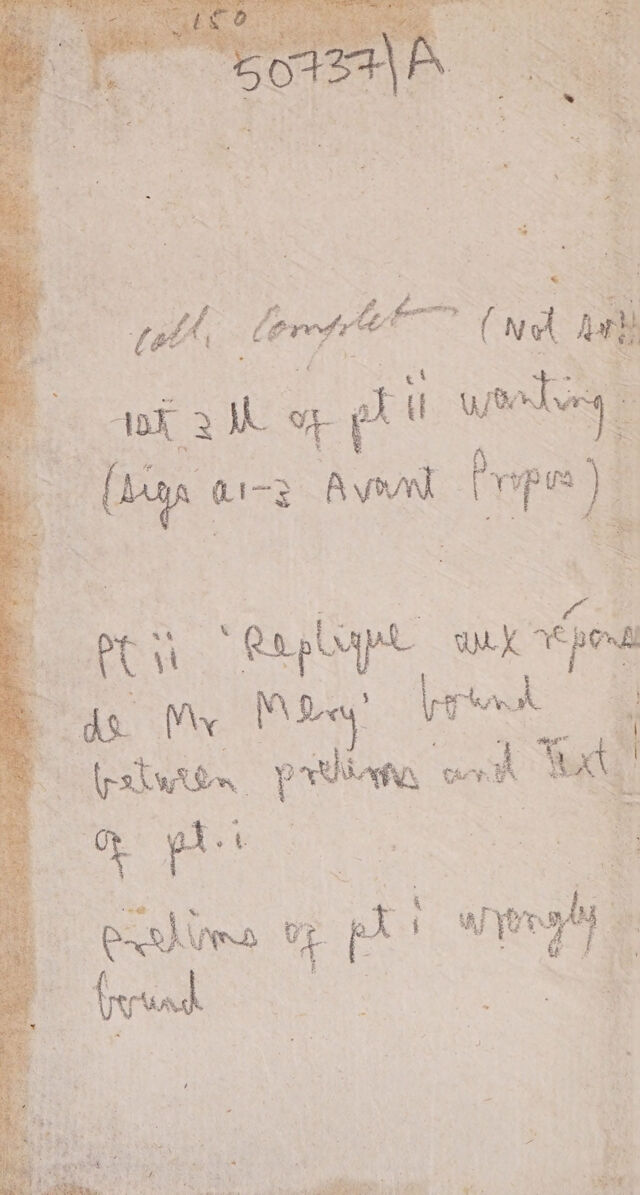 150
50737/A
Coll. Complet (Not so!!
1st 3 ll of pt ii wanting
(sigs a1-3 Avant Propos)
Pt ii 'Replique aux répons
de Mr Mery' bound
between prelims and Text
of pt. i
Prelims of pt i wrongly
bound